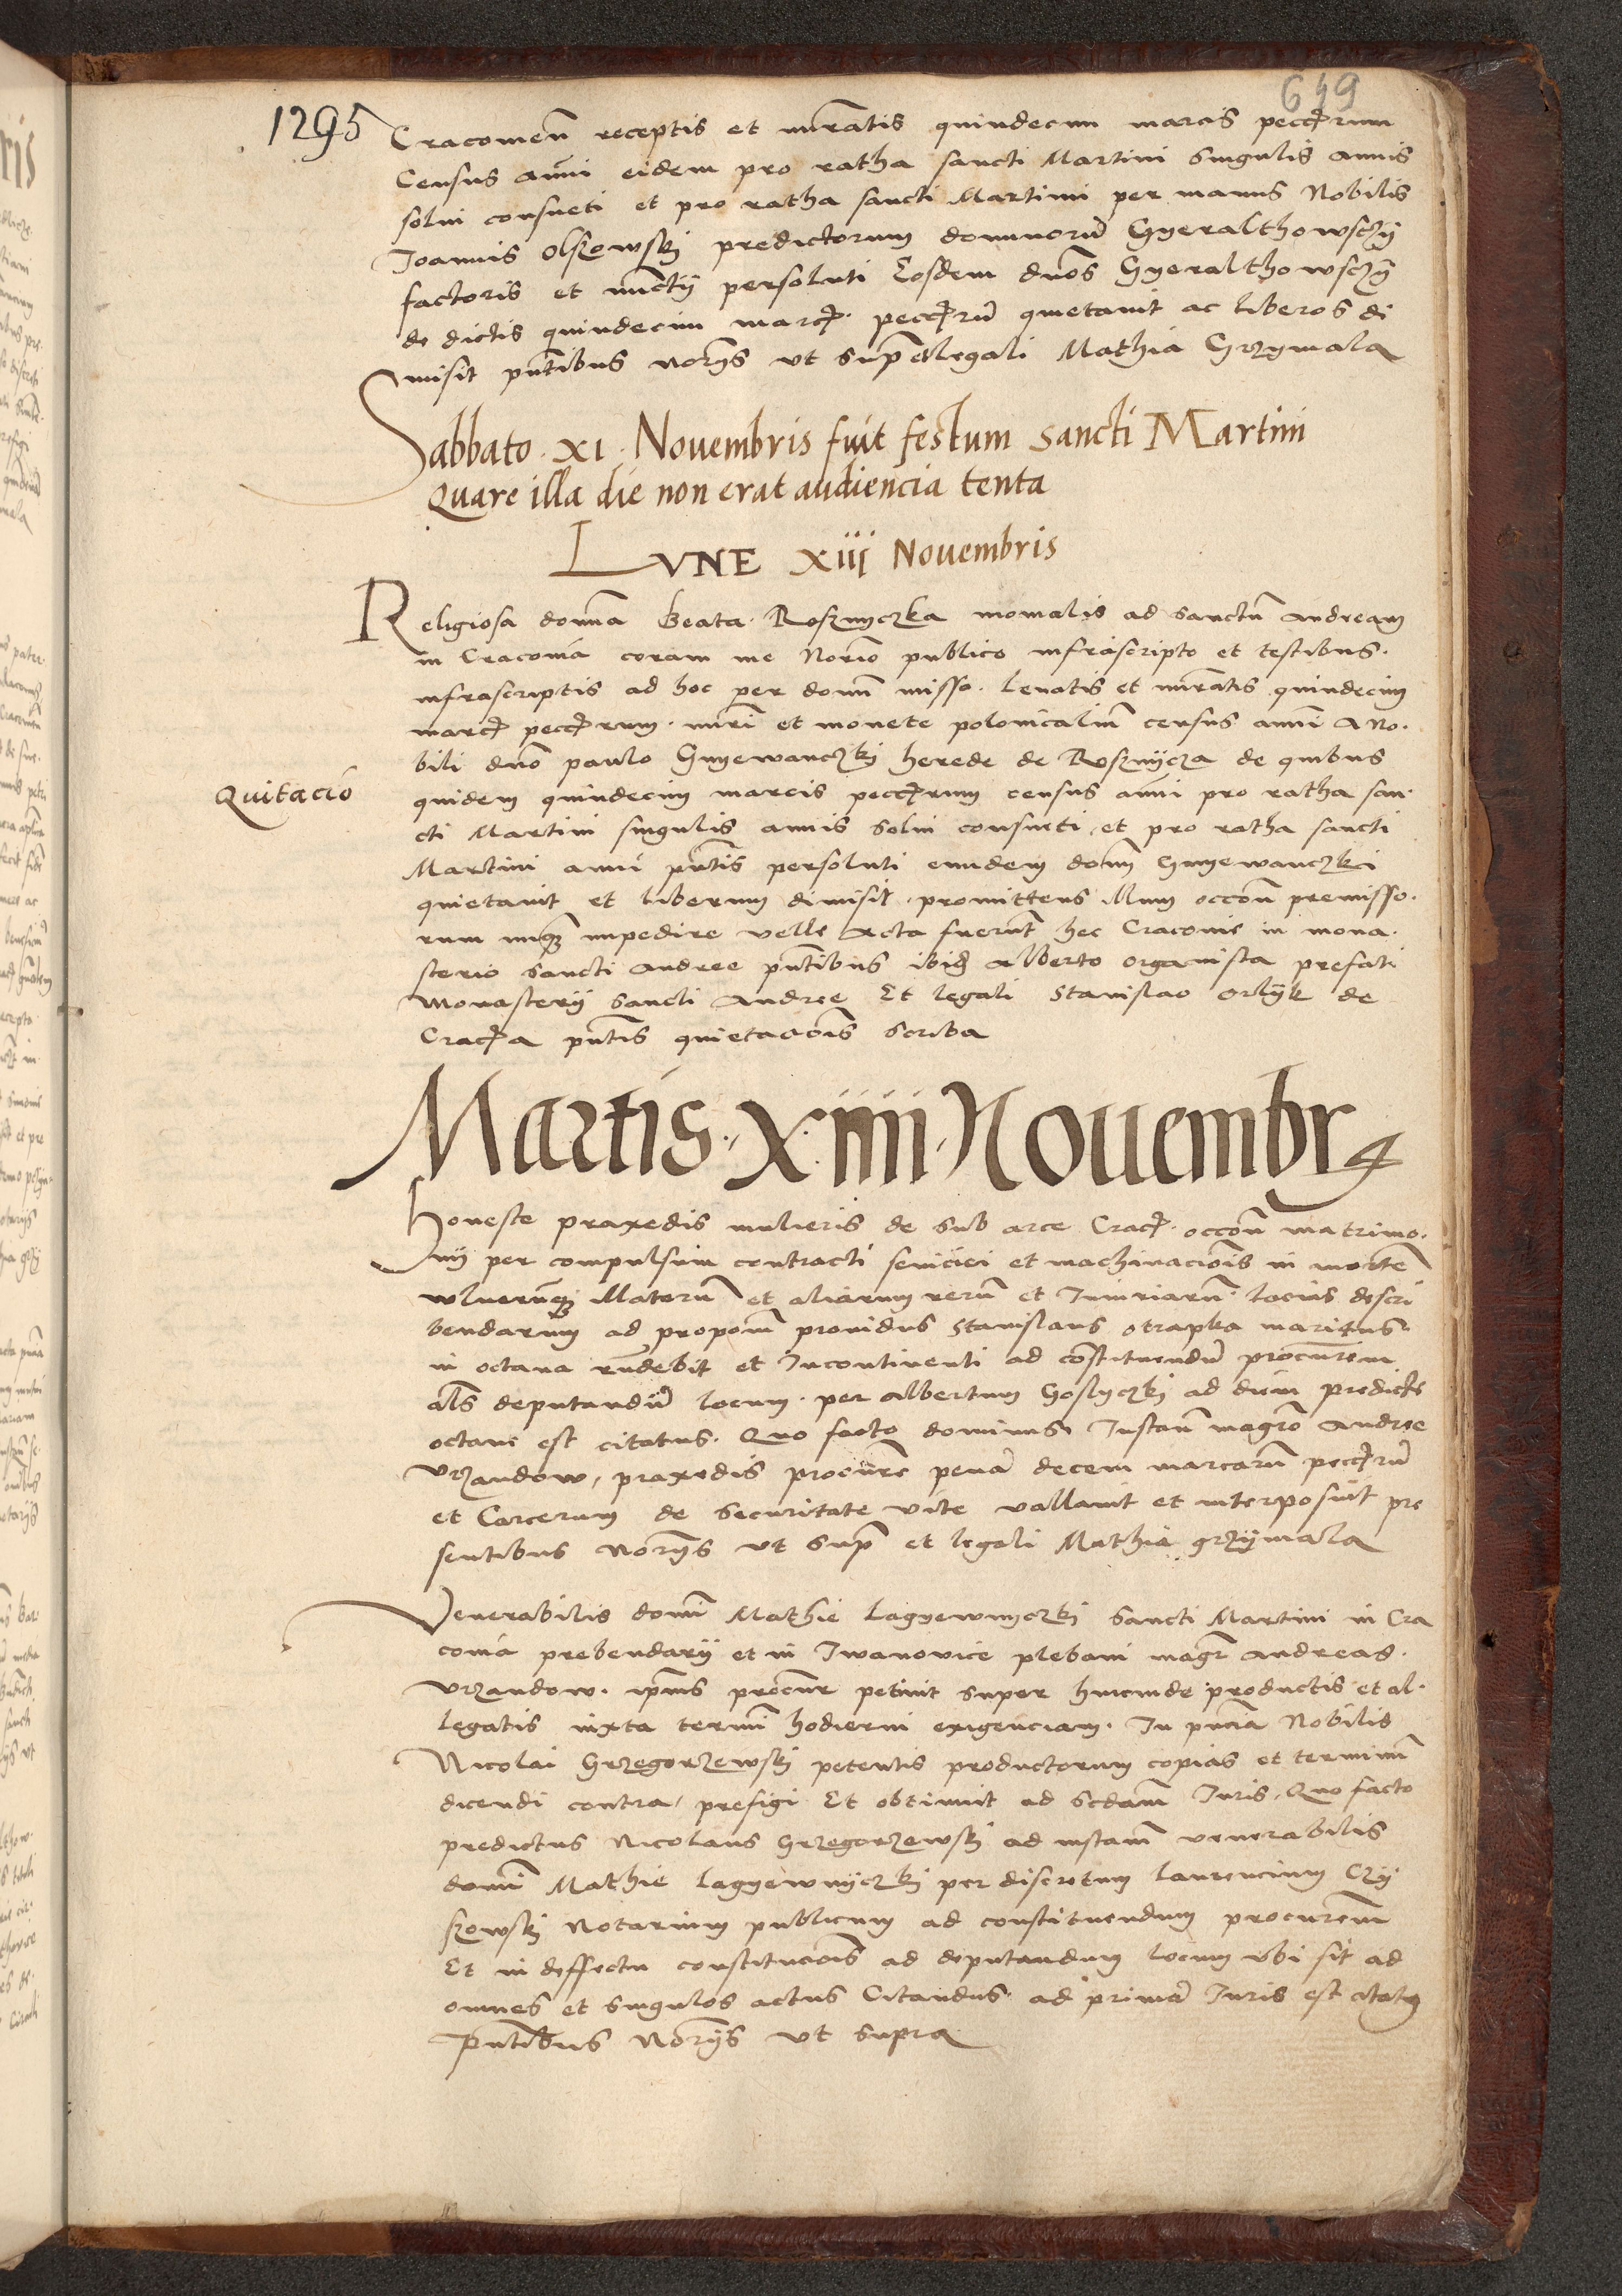 649
1295
Cracomen̄ receptis et nu̅ratis quindecim marcis peccrum
Census anni eidem pro ratha sancti Martini singulis annis
solui consueti et pro ratha sancti Martini per manus Nobilis
Joannis Olszowskj predictorum dominoru̅ Gyeralthowsczy
factoris et nunctij persoluti Eosdem dn̅os Gyeralthowsczy
de dictis quindecim marc. peccru̅ quetauit ac liberos di
misit pn̅tibus No̅rijs vt sup̅ et legali Mathia Grzymala
Sabbato · XI · Nouembris fuit festum sancti Martini
Quare illa die non erat audiencia tenta
LVNE XIII Nouembris
Religiosa domna Beata Rosznyczka monialis ad sanctu̅ Andream
in Cracouia coram me No̅rio publico infrascripto et testibus
infrascriptis ad hoc per domu̅ misso. Leuatis et nu̅ratis quindecim
marc peccrum nu̅ri et monete polonicaliu̅ census anni a No
bili dn̅o paulo Gnyewanczkj herede de Rosznycza de quibus
Quitacio̅
quidem quindecim marcis peccrum census anni pro ratha san
cti Martini singulis annis solui consueti et pro ratha sancti
Martini anni pn̅tis persoluti eundem dom̅ Gnyewanczki
quietauit et liberum dimisit promittens illum occo̅n̅ premisso
rum nunq̄ impedire velle Acta fuerunt hec Cracouie in mona
sterio sancti Andree pn̅tibus ibid Alberto organista prefati
Monasterij sancti Andree Et legali Stanislao Orlyk de
Crac̅a pn̅tis quietacio̅is scriba
Martis · XIIII · Nouembr
Honeste praxedis mulieris de sub arce Crac. occo̅n̅ matrimo
nij per compulsum contracti seuiciei et machinacio̅is in morte̅
wlnerumq̄ illatoru̅ et aliarum reru̅ et Iniuriaru̅ lacius descri
bendarum ad propo̅n̅ prouidus Stanislaus otrapka maritus
in octaua rn̅debit et Incontinenti ad co̅stituendu̅ procure̅m
al̅s deputandu̅ locum per Albertum Goslyczkj ad diem predicte
octaue est citatus. Quo facto dominus Instan̅ magr̅o Andree
Vrzandow, praxedis procur̅e pena̅ decem marcaru̅ peccru̅
et Carcerum de securitate vite vallauit et interposuit pre
sentibus No̅rijs vt sup̅ et legali Mathia grzymala
Venerabilis dom̅ Mathie Lagyewnyczkj sancti Martini in Cra
couia prebendarij et in Iwanovice plebani magr̅ Andreas
Vrzandow. ip̅ius procur petiuit super huiu̅ide productis et al
legatis iuxta termi̅ hodierni exigenciam. In pn̅cia Nobilis
Nicolai Grzegorzewskj petentis productorum copias et terminu̅
dicendi contra, prefigi Et obtinuit ad scda̅m Iuris, Quo facto
predictus Nicolaus Grzegorzewskj ad instan̅ venerabilis
domi̅ Mathie Lagyewnyczkj per discretum Laurencium Czy
szowskj Notarium publicum ad constituendum procure̅m
Et in deffectu constitucio̅is ad deputandum locum vbi sit ad
omnes et singulos actus Citandus ad prima̅ Iuris est citatus
Pn̅tibus No̅rijs vt supra